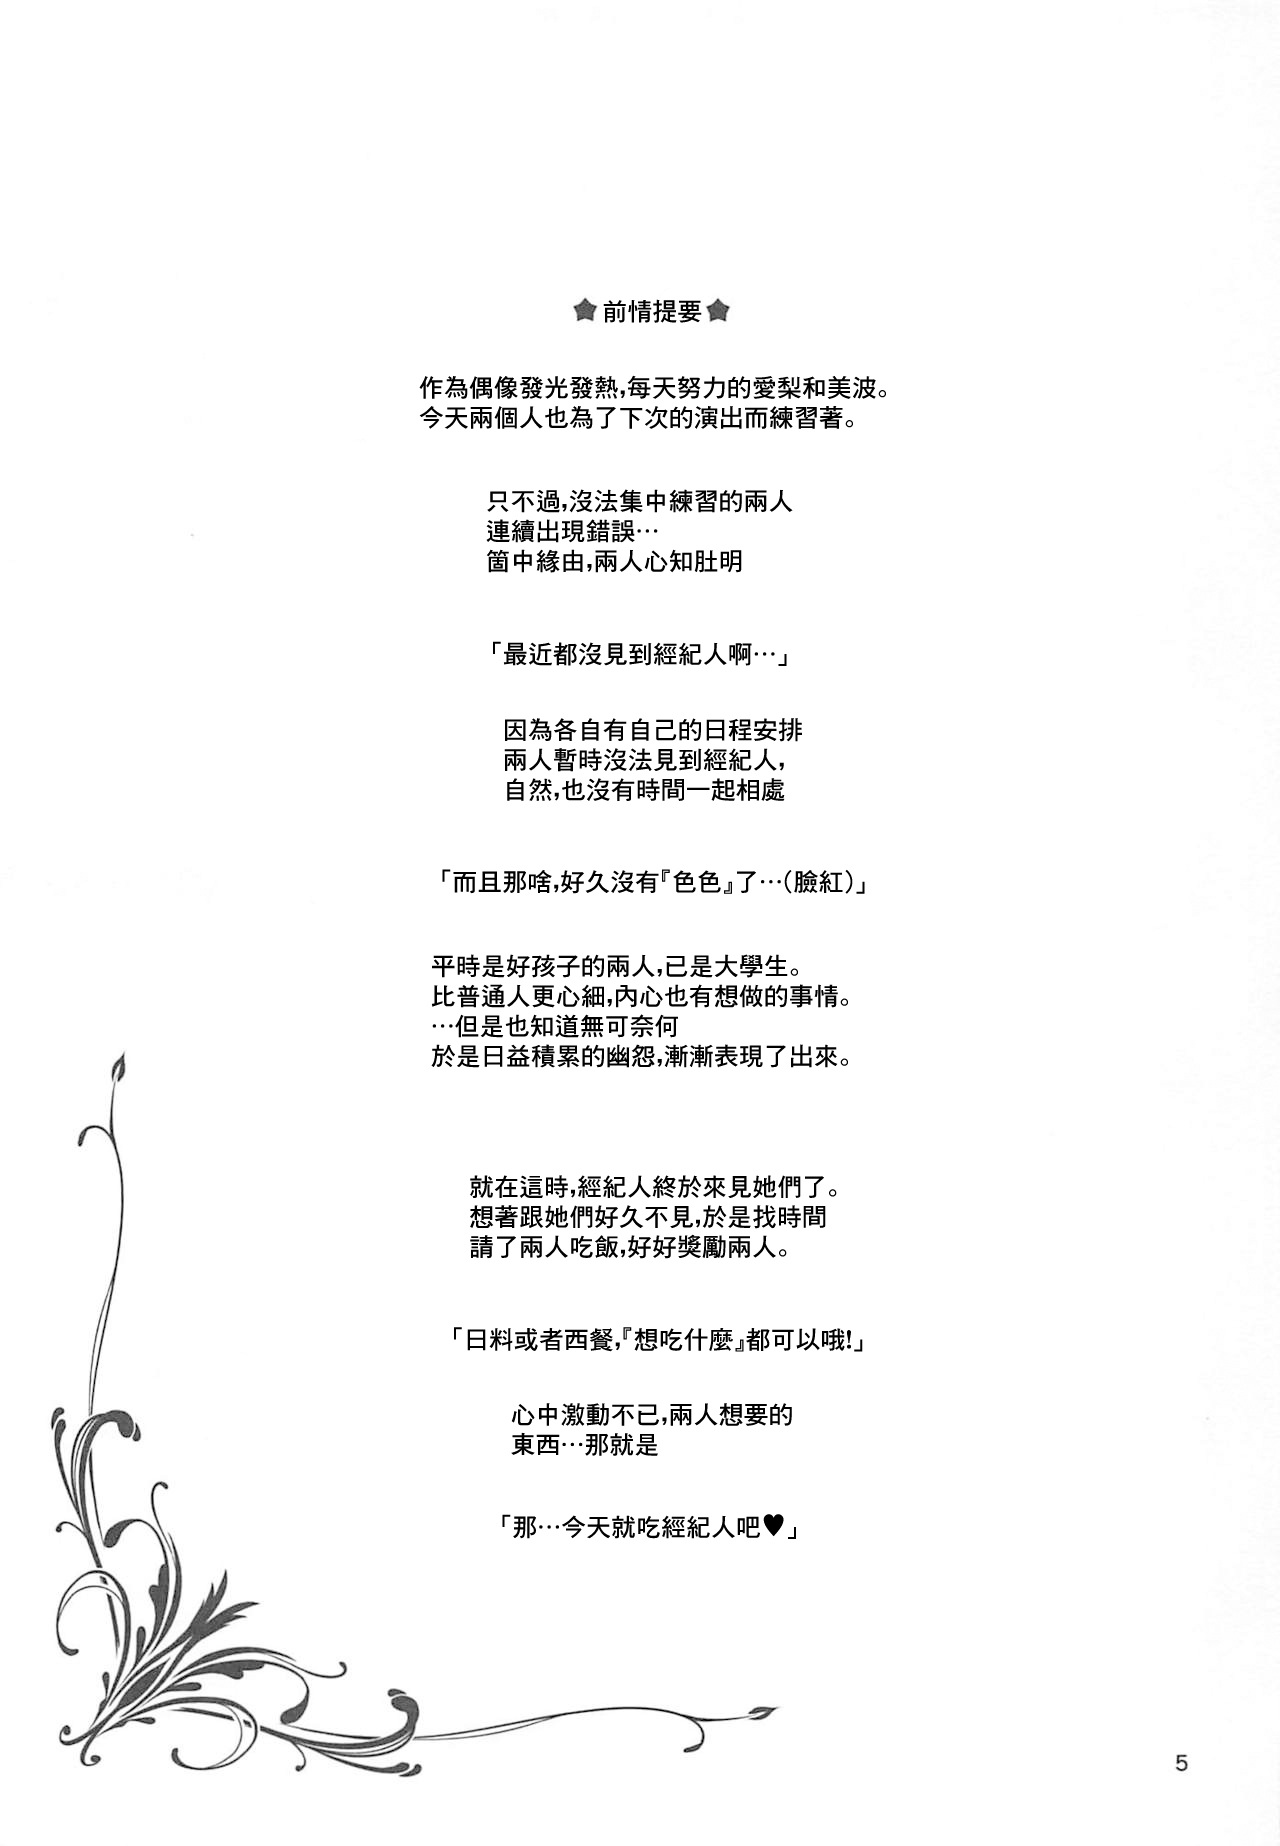 ★前情提要★
作為偶像發光發熱,每天努力的愛梨和美波。
今天兩個人也為了下次的演出而練習著。
只不過,沒法集中練習的兩人
連續出現錯誤…
箇中緣由,兩人心知肚明
「最近都沒見到經紀人啊…」
因為各自有自己的日程安排
兩人暫時沒法見到經紀人,
自然,也沒有時間一起相處
「而且那啥,好久沒有『色色』了…(臉紅)」
平時是好孩子的兩人,已是大學生。
比普通人更心細,內心也有想做的事情。
…但是也知道無可奈何
於是日益積累的幽怨,漸漸表現了出來。
就在這時,經紀人終於來見她們了。
想著跟她們好久不見,於是找時間
請了兩人吃飯,好好獎勵兩人。
「日料或者西餐,『想吃什麼』都可以哦!」
心中激動不已,兩人想要的
東西…那就是
「那…今天就吃經紀人吧♥」
5